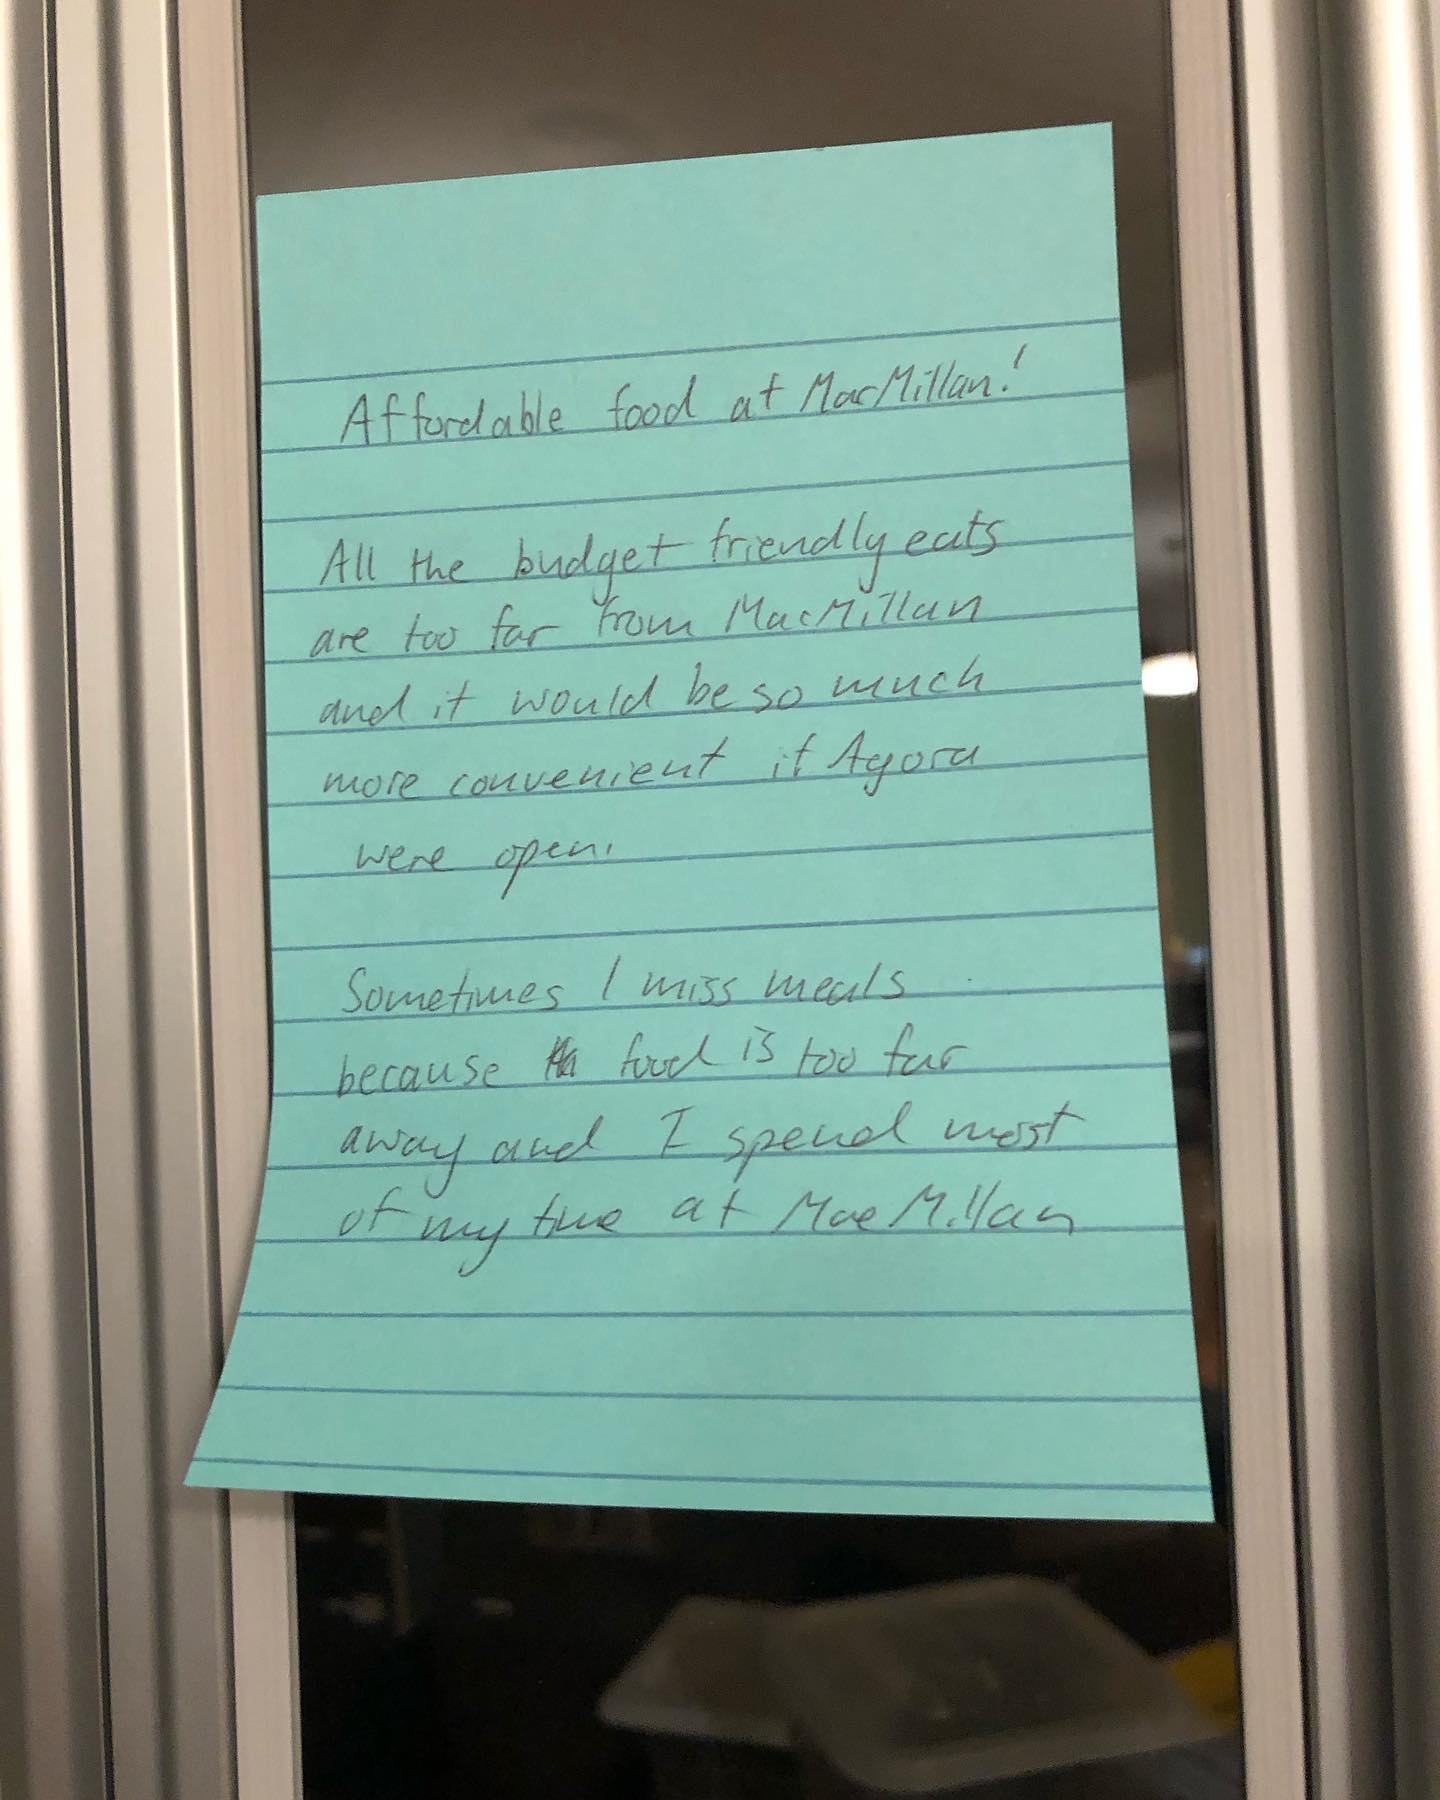 Affordable food at MacMillan!
All the budget friendly eats
are too far from MacMillan
and it would be so much
more convenient if Agora
were open.
Sometimes I miss meals
because food is too far
away and I spend most
of my time at MacMillan